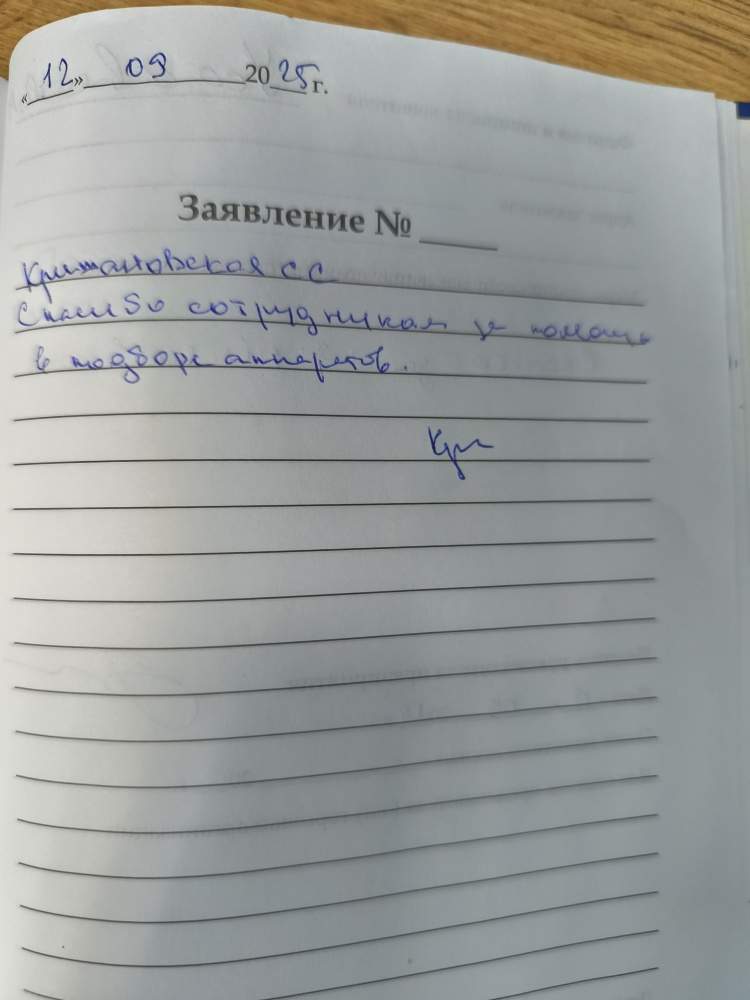 «12» 09 2025 г.
Заявление № ____
Крижановская С С
Спасибо сотрудникам за помощь
в подборе аппаратов.